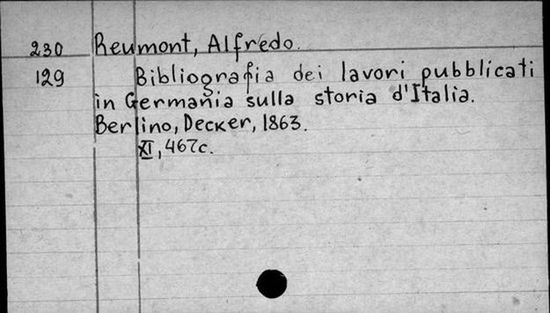 230 Reumont, Alfredo.
129 Bibliografia dei lavori pubblicati
in Germania sulla storia d'Italia.
Berlino, Decker, 1863.
XI, 467c.